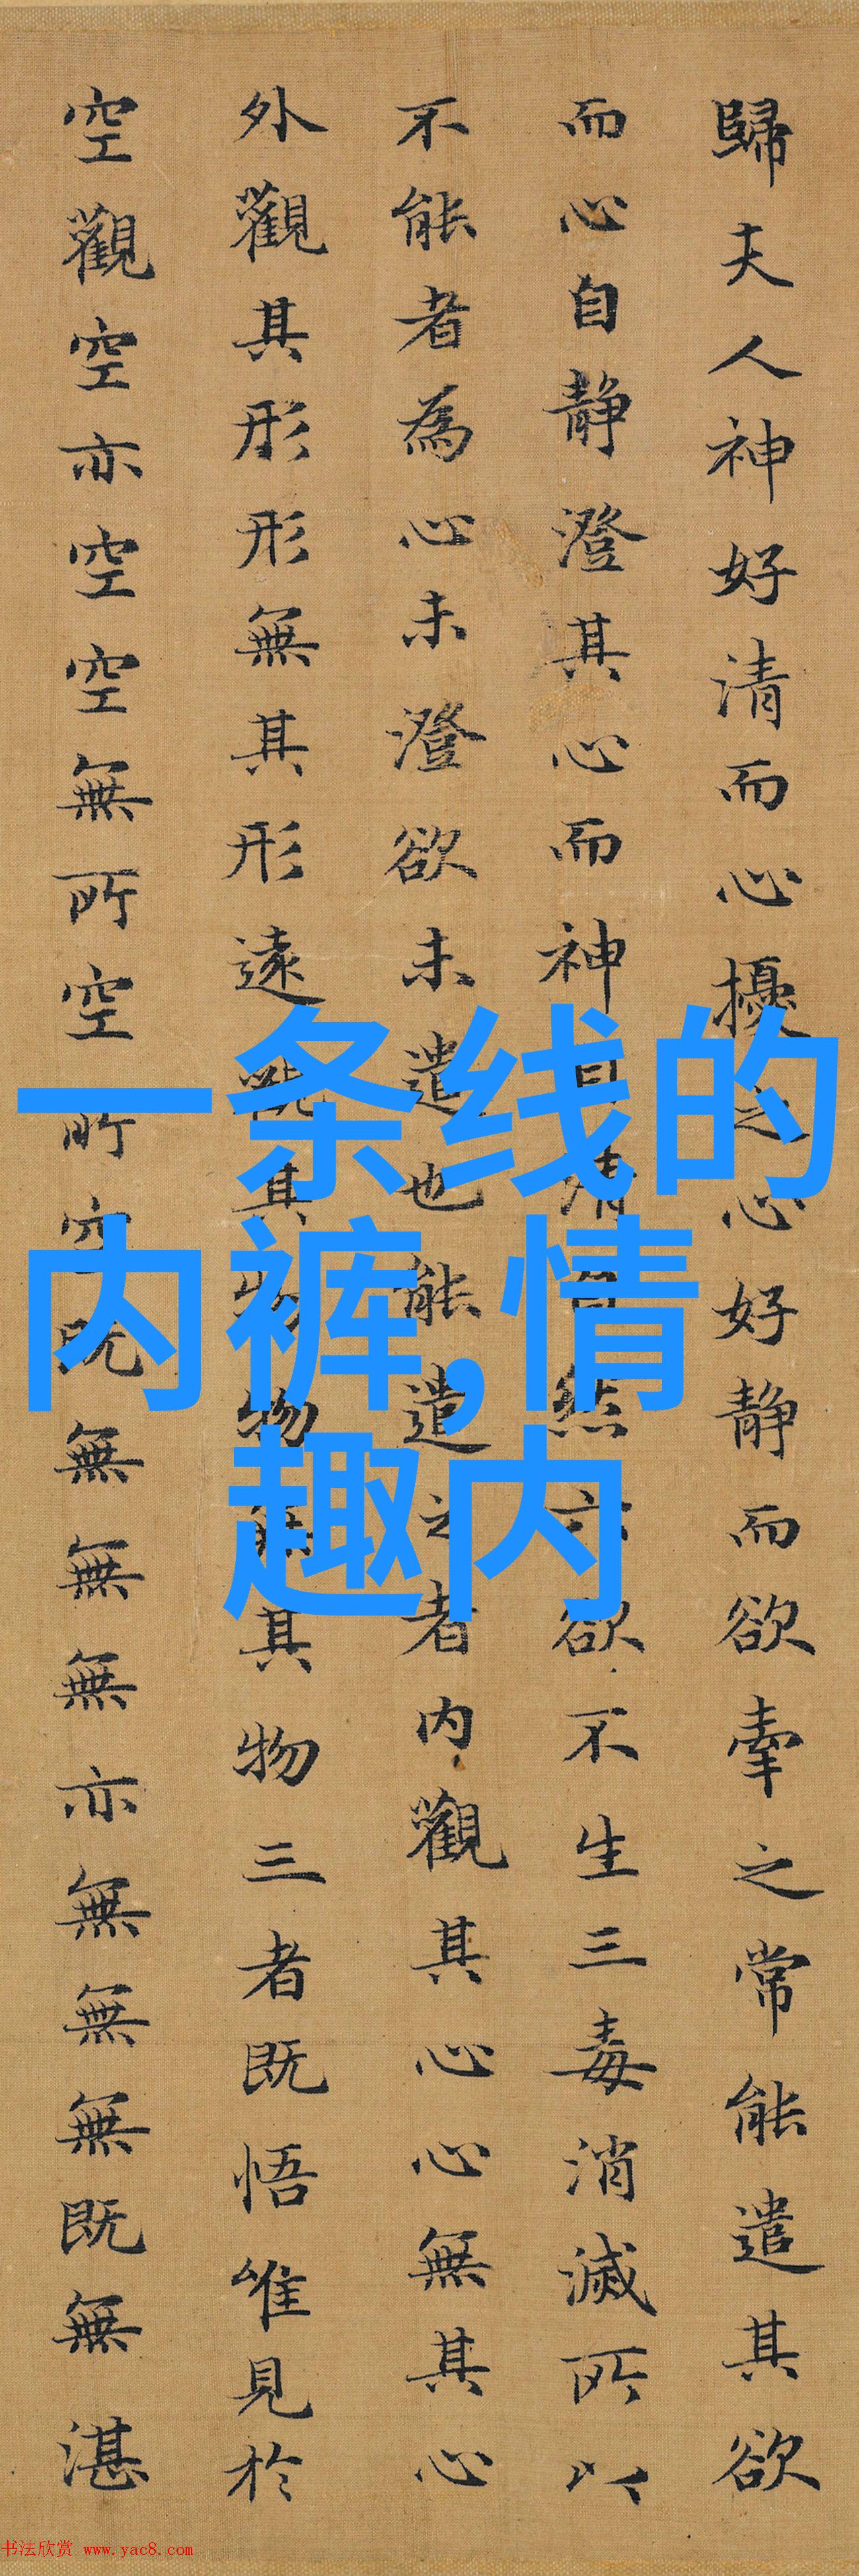 歸夫人神好清而心擾之心好静而欲牽之常能遣其欲
而心自静澄其心而神自清自然六欲不生三毒消滅所以
不能者為心未澄欲未遣也能遣之者内觀其心心無其心
外觀其形形無其形遠觀其物物無其物三者既悟唯見於
空觀空亦空空無所空所空既無無無亦無無無既無湛
一条线的
内裤,情
趣内
书法欣赏 www.yac8.com